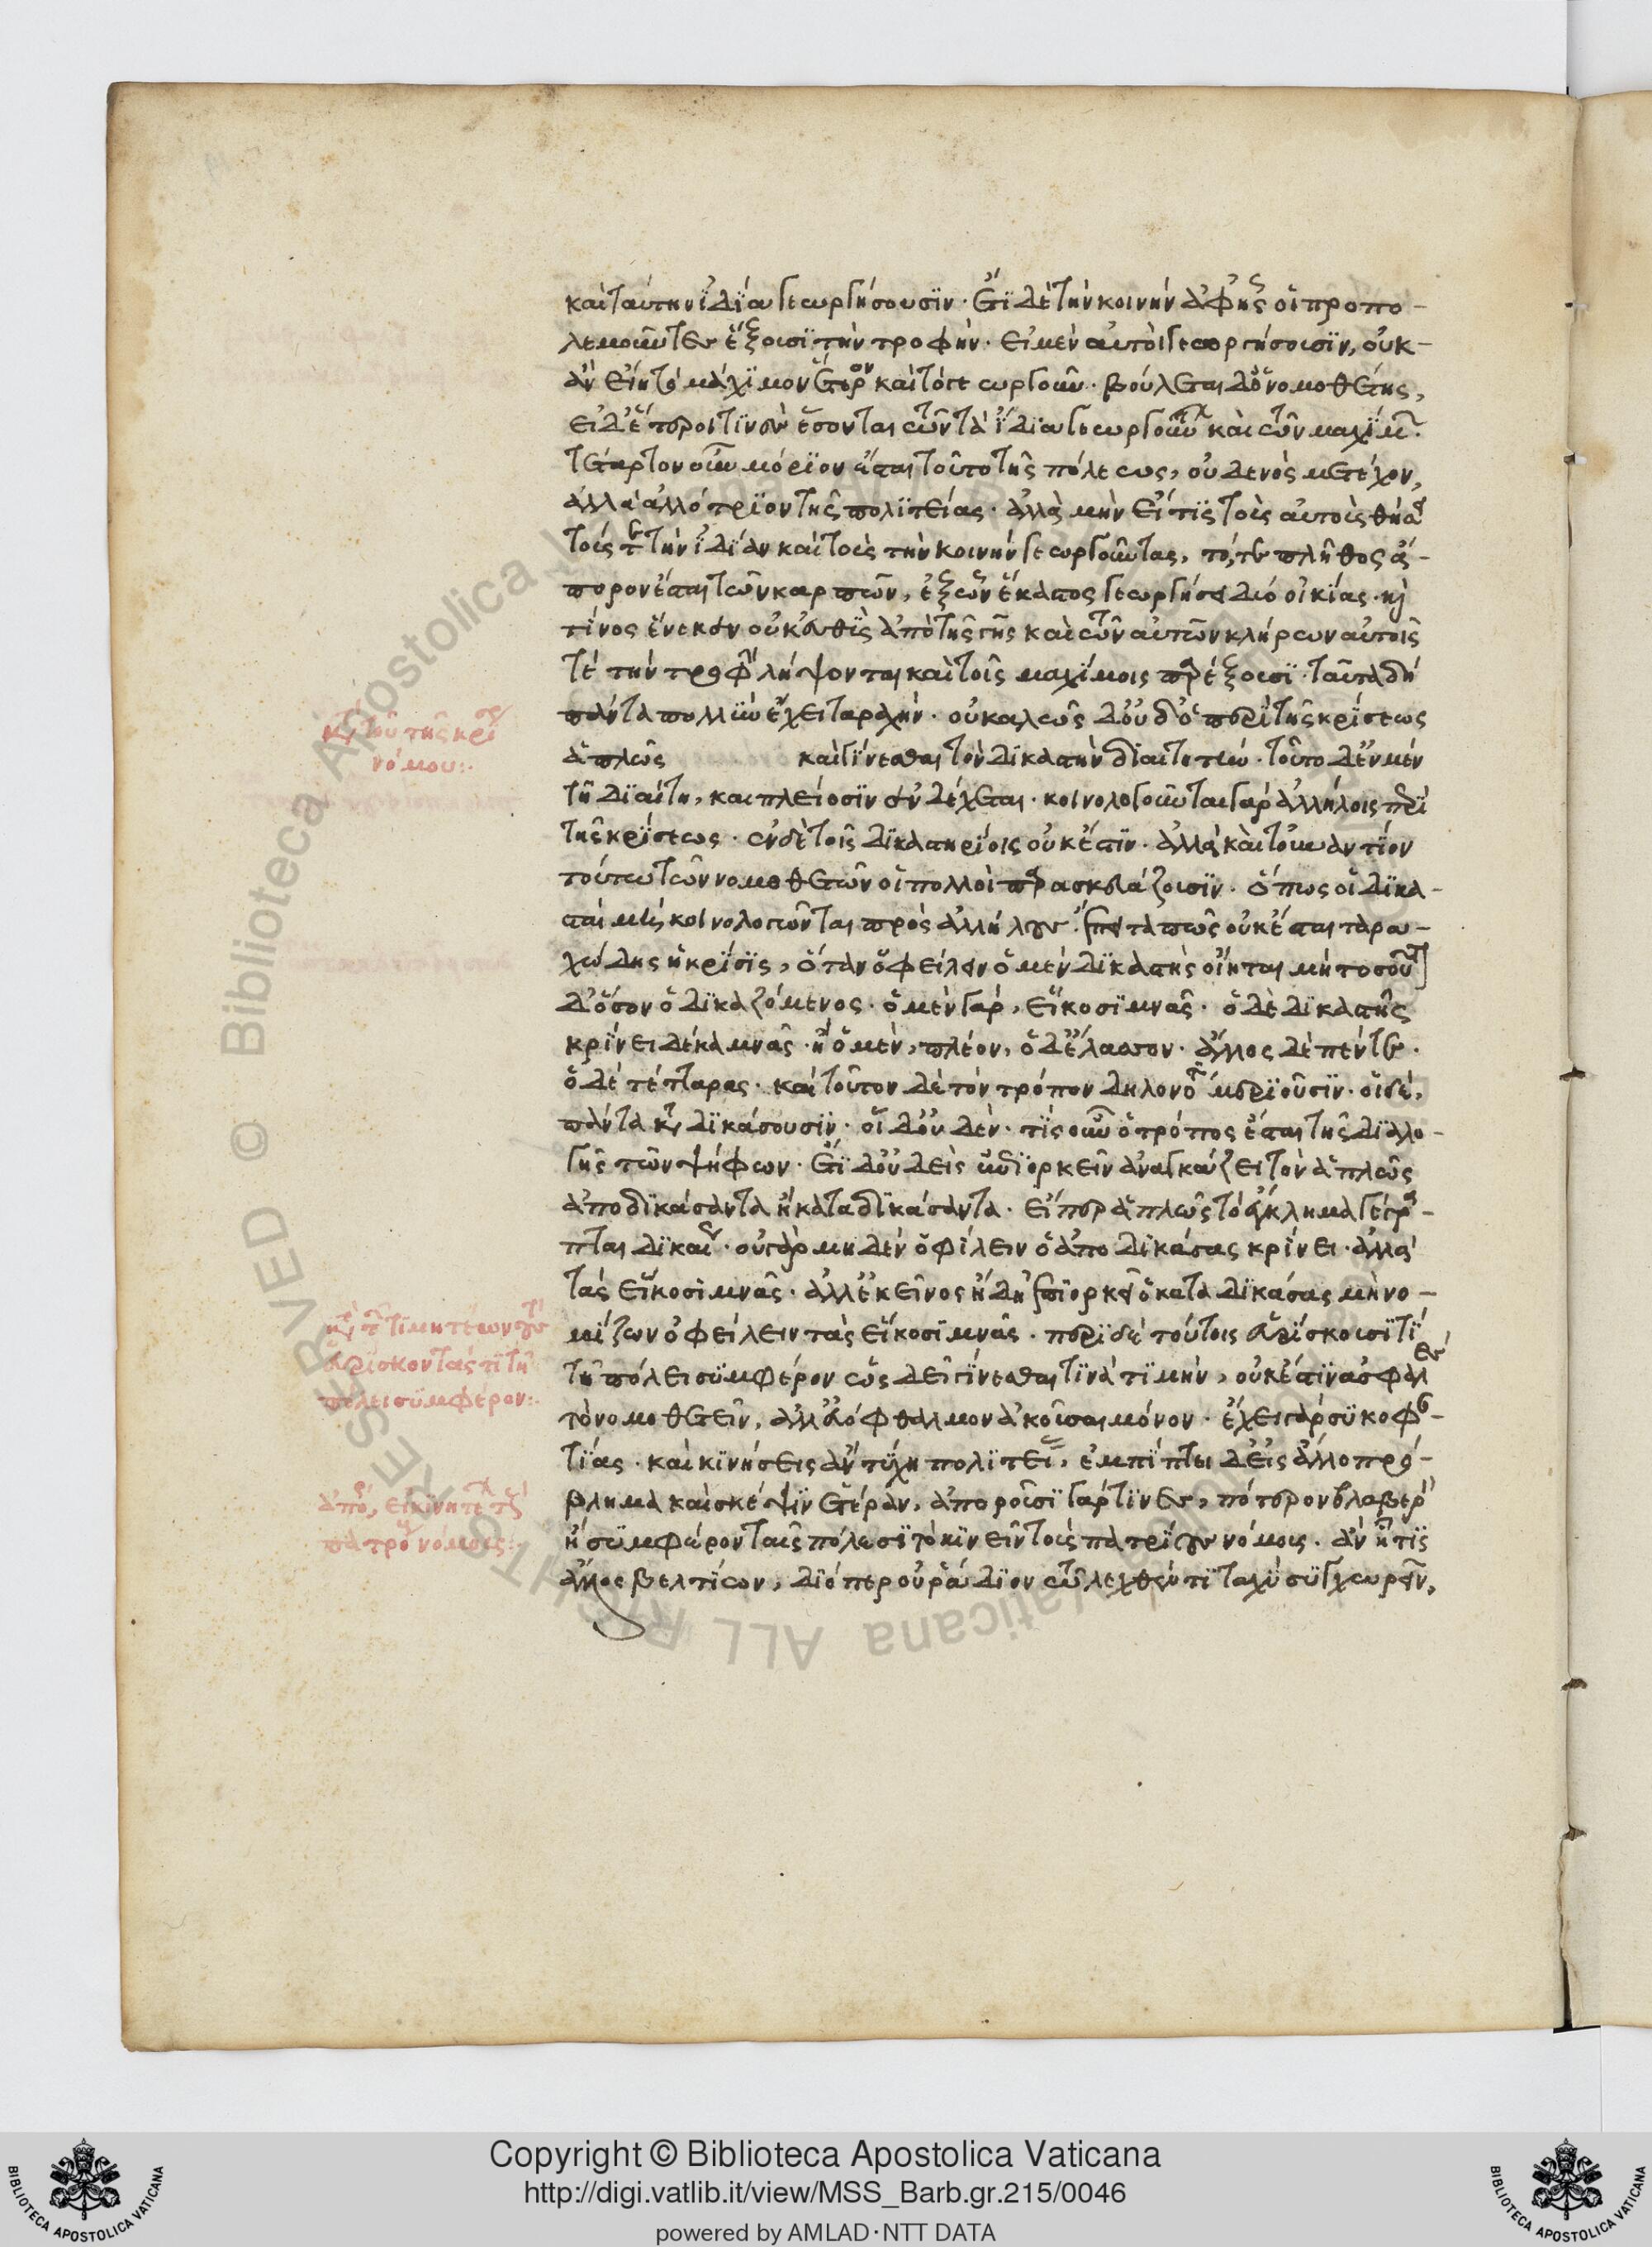 καὶ ταύτην ἰδίᾳ γεωργήσουσιν. ἔτι δὲ τὴν κοινὴν ἀφ' ἧς οἱ προπο-
λεμοῦντες ἕξουσι τὴν τροφήν. εἰ μὲν αὐτοὶ γεωργήσουσιν, οὐκ-
ἂν εἴη τὸ μάχιμον ἕτερον καὶ τὸ γεωργοῦν. βούλεται δ' ὁ νομοθέτης,
εἰ δ' ἕτεροί τινες ἔσονται τῶν τὰ ἴδια γεωργούντων καὶ τῶν μαχίμων.
τέταρτον οὖν μόριον ἔσται τοῦτο τῆς πόλεως, οὐδενὸς μετέχον,
ἀλλὰ ἀλλότριον τῆς πολιτείας. ἀλλὰ μὴν εἴ τις τοὺς αὐτοὺς θήσει
τούς τε τὴν ἰδίαν καὶ τοὺς τὴν κοινὴν γεωργοῦντας, τό, τε πλῆθος ἄ-
πορον ἔσται τῶν καρπῶν, ἐξ ὧν ἕκαστος γεωργήσει δύο οἰκίας. καὶ
τίνος ἕνεκεν οὐκ εὐθὺς ἀπὸ τῆς γῆς καὶ τῶν αὐτῶν κλήρων αὐτοῖς
τὲ τὴν τροφὴν λήψονται καὶ τοῖς μαχίμοις παρέξουσι. ταῦτα δὴ
πάντα πολλὴν ἔχει ταραχήν. οὐ καλῶς δ' οὐδ' ὁ περὶ τῆς κρίσεως
ἁπλῶς καὶ γίνεσθαι τὸν δικαστὴν διαιτητήν. τοῦτο δ' ἐν μὲν
τῇ διαίτῃ, και πλείοσιν ἐνδέχεται. κοινολογοῦνται γὰρ ἀλλήλοις περὶ
τῆς κρίσεως. ἐν δὲ τοῖς δικαστηρίοις οὐκ ἔστιν. ἀλλὰ καὶ τοὐναντίον
τούτω τῶν νομοθετῶν οἱ πολλοὶ παρασκευάζουσιν. ὅπως οἱ δικα-
σταὶ μὴ κοινολογῶνται πρὸς ἀλλήλους. ἔπειτα πῶς οὐκ ἔσται ταρα-
χώδης ἡ κρίσις, ὅταν ὀφείλειν ὁ μὲν δικαστὴς οἴηται μὴ τοσοῦτον
δ' ὅσον ὁ δικαζόμενος. ὁ μὲν γὰρ, εἴκοσι μνᾶς. ὁ δὲ δικαστὴς
κρίνει δέκα μνᾶς. ἢ ὁ μὲν, πλέον, ὁ δ' ἔλασσον. ἄλλος δὲ πέντε.
ὁ δὲ τέτταρας. καὶ τοῦτον δὲ τὸν τρόπον δηλονότι μεριοῦσιν. οἱ δὲ,
πάντα καταδικάσουσιν. οἱ δ' οὐδέν. τίς οὖν ὁ τρόπος ἔσται τῆς διαλο-
γῆς τῶν ψήφων. ἔτι δ' οὐδεὶς ἐπιορκεῖν ἀναγκάζει τὸν ἁπλῶς
ἀποδικάσαντα ἢ καταδικάσαντα. εἴπερ ἁπλῶς τὸ ἔγκλημα γέγρα-
πται δικαίως. οὐ γὰρ μηδὲν ὀφίλειν ὁ ἀποδικάσας κρίνει. ἀλλὰ
τὰς εἴκοσι μνᾶς. ἀλλ' ἐκεῖνος ἤδη ἐπιορκεῖ ὁ καταδικάσας μὴ νο-
μίζων ὀφείλειν τὰς εἴκοσι μνᾶς. περὶ δὲ τούτοις εὑρίσκουσί τι
τῇ πόλει συμφέρον ὡς δεῖ γίνεσθαι τινὰ τιμὴν, οὐκ ἔστιν ἀσφαλὲς
τὸ νομοθετεῖν, ἀλλ' εὐόφθαλμον ἀκοῦσαι μόνον. ἔχει γὰρ συκοφαν-
τίας. καὶ κινήσεις ἂν τύχῃ πολιτείας, ἐμπίπτει δ' εἰς ἄλλο πρό-
βλημα καὶ σκέψιν ἑτέραν, ἀποροῦσι γάρ τινες, πότερον βλαβερὸν
ἢ συμφέρον ταῖς πόλεσι τὸ κινεῖν τοὺς πατρίους νόμοις. ἂν ᾖ τις
ἄλλος βελτίων, διόπερ οὐ ῥάδιον τῷ λεχθέντι ταχὺ συγχωρεῖν,
νόμου:
εὑρίσκοντάς τι τῇ
πόλει συμφέρον:
Copyright © Biblioteca Apostolica Vaticana
http://digi.vatlib.it/view/MSS_Barb.gr.215/0046
powered by AMLAD·NTT DATA
BIBLIOTECA APOSTOLICA VATICANA
BIBLIOTECA APOSTOLICA VATICANA